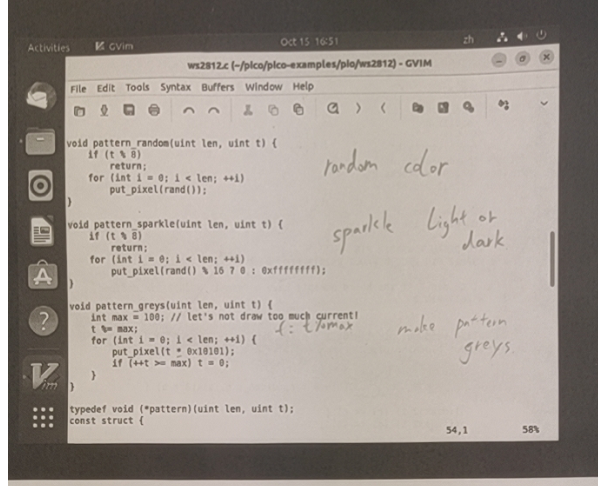 Activities
GVim
Oct 15 16:51
zh
ws2812.c (~/pico/pico-examples/pio/ws2812) - GVIM
File Edit Tools Syntax Buffers Window Help
void pattern_random(uint len, uint t) {
if (t % 8)
return;
for (int i = 0; i < len; ++i)
put_pixel(rand());
}
random color
void pattern_sparkle(uint len, uint t) {
if (t % 8)
return;
for (int i = 0; i < len; ++i)
put_pixel(rand() % 16 ? 0 : 0xffffffff);
}
sparkle Light or
dark
void pattern_greys(uint len, uint t) {
int max = 100; // let's not draw too much current!
t %= max;
t = t%max
for (int i = 0; i < len; ++i) {
put_pixel(t * 0x10101);
if (++t >= max) t = 0;
}
}
make pattern
greys.
typedef void (*pattern)(uint len, uint t);
const struct {
54,1
58%